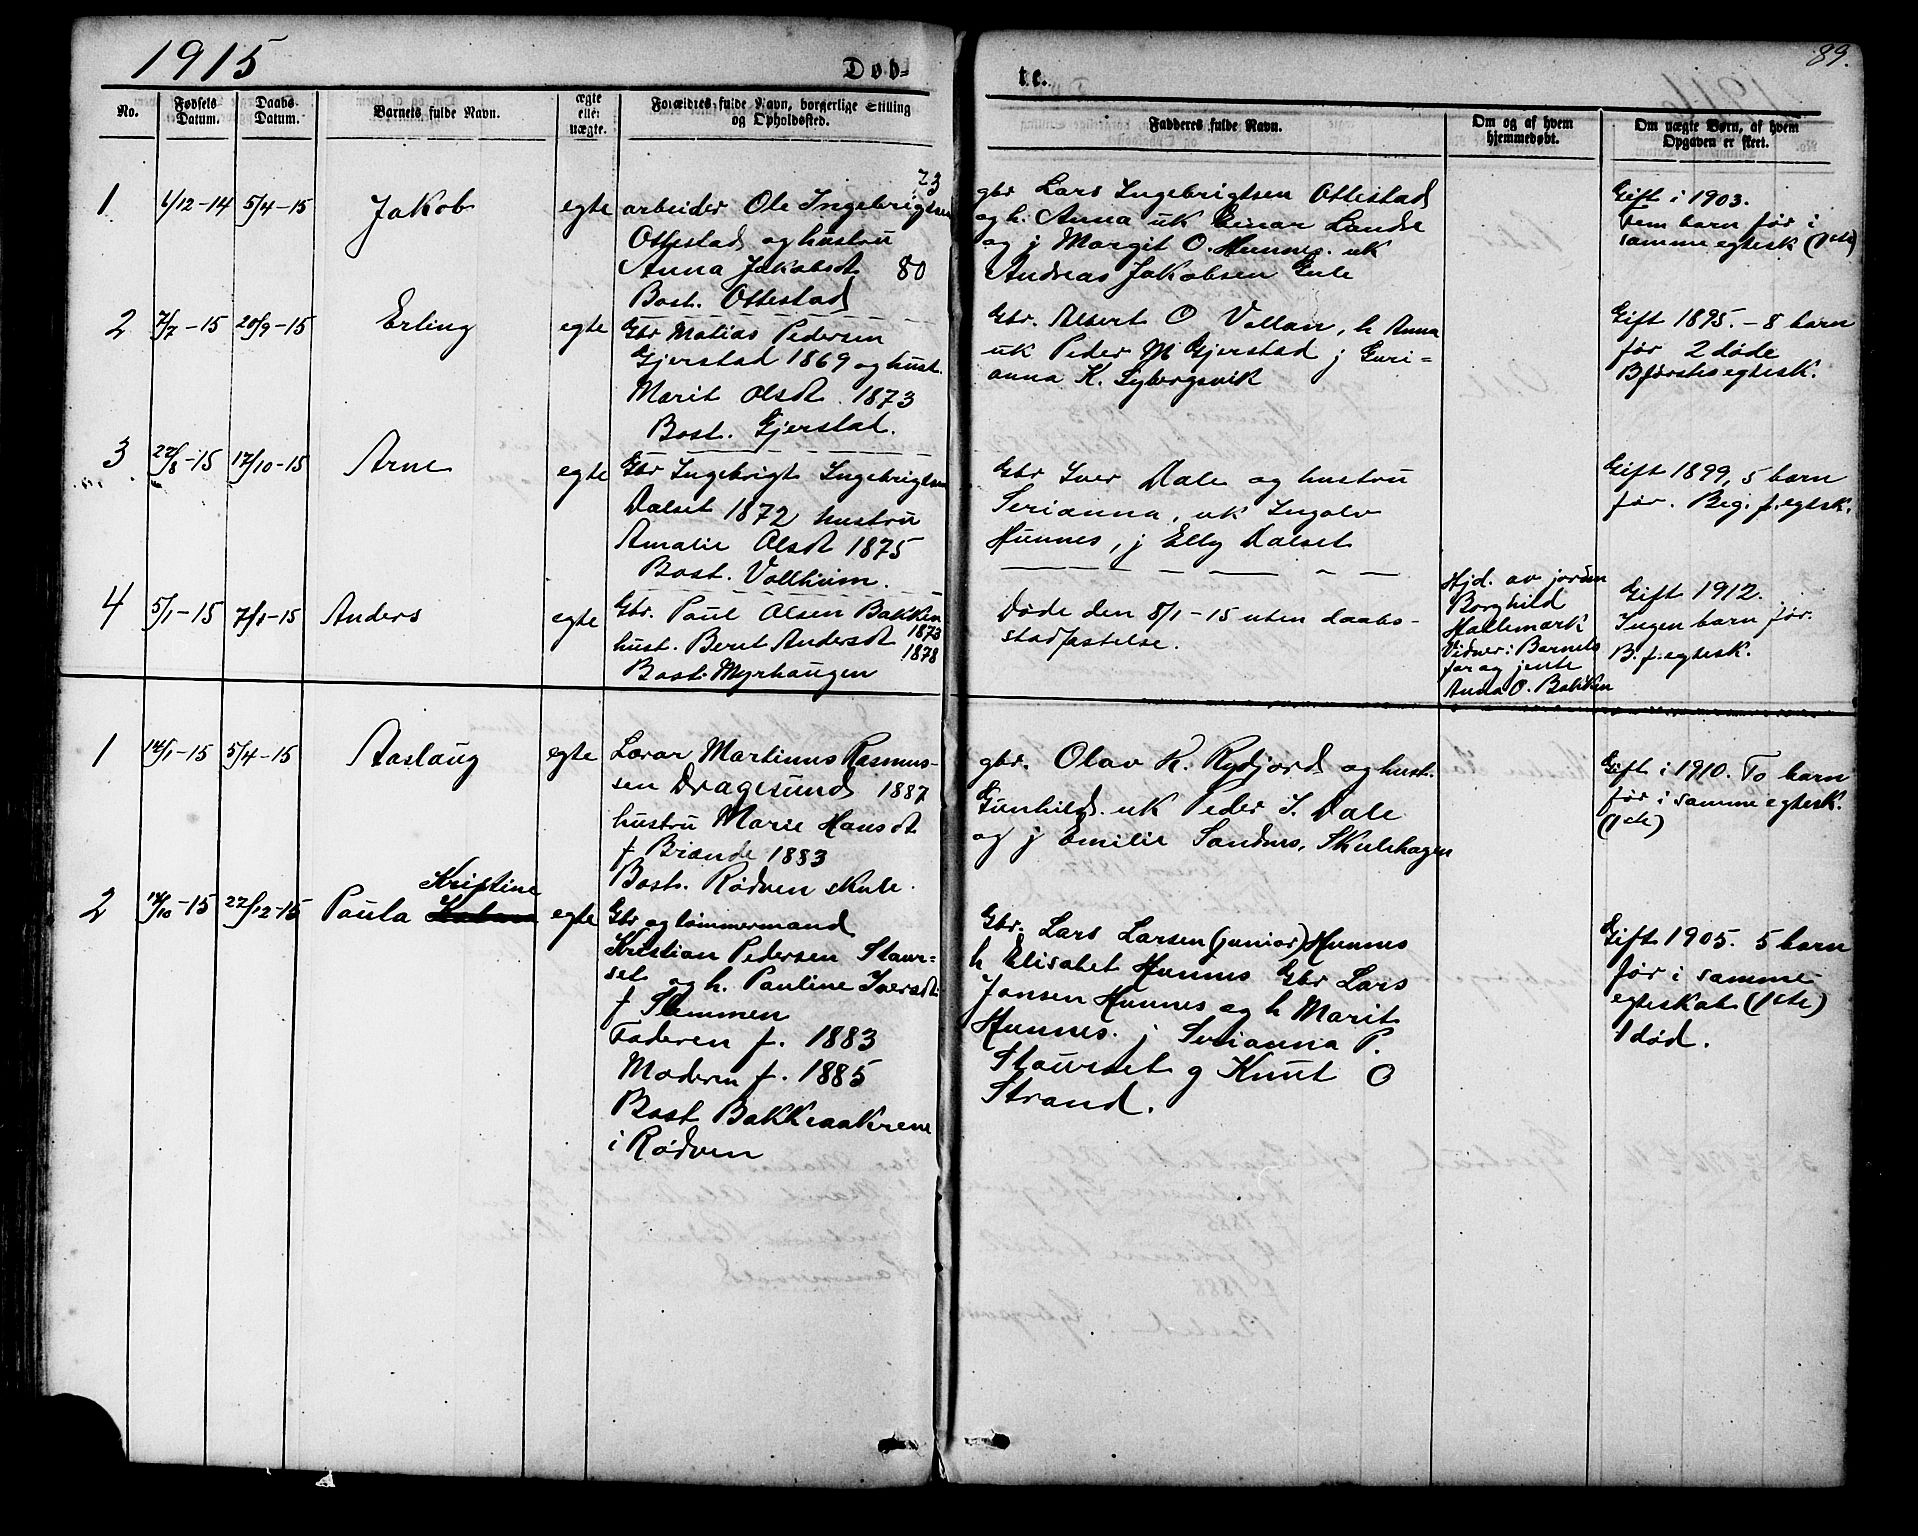 1915
Døb-
te.
89.
No.
Fødsels
Datum.
Daabs-
Datum.
Barnets fulde Navn.
ægte
eller
uægte.
Forældres fulde Navn, borgerlige Stilling
og Opholdssted.
Fadderes fulde Navn.
Om og af hvem
hjemmedøbt.
Om uægte Børn, af hvem
Opgaven er skeet.
1
6/12-14
5/4-15
Jakob
egte
73
arbeider Ole Ingebrigtsen
Ottestad og hustru
Anna Jakobsdt 80
Bost. Ottestad
gbr Lars Ingebrigtsen Ottestad
og h. Anna uk Einar Lande
og j Margit O. Hunnes. uk
Andreas Jakobsen
Gift i 1903.
Fem barn før i
samme egtesk (1ste)
2
7/7-15
20/9-15
Erling
egte
Gbr Matias Pedersen
Gjerstad 1869 og hust.
Marit Olsdt. 1873
Bost. Gjerstad.
Gbr. Albert O Vollan, h Anna
uk Peder M Gjerstad j Guri=
anna K. Lybergsvik
Gift 1895. - 8 barn
før 2 døde
B førstes egtesk.
3
22/8-15
17/10-15
Arne
egte
Gbr Ingebrigt Ingebrigtsen
Dalset 1872 hustru
Amalie Olsdt 1875
Bost. Vollheim.
Gbr Iver Dale og hustru
Serianna, uk Ingolv
Hunnes, j Elly Dalset
Gift 1899, 5 barn
før. Beg. f. egtesk.
4
5/1-15
7/1-15
Anders
egte
Gbr. Paul Olsen Bakken
1873
hust. Berit Andersdt 1878
Bost. Myrhaugen
Døde den 8/1-15 uten daabs-
stadfæstelse.
Hjd. av jordm
Borghild
Hallemark
Vidner: Barnets
far og jente
Anna O. Bakken
Gift 1912.
Ingen barn før.
B. f. egtesk.
1
14/1-15
5/4-15
Aaslaug
egte
Lærar Martinus Rasmus-
sen Dragesund 1887
hustru Marie Hansdt
f Brande 1883
Bost. Rødven skule.
gbr. Olav K. Rydjord og hust.
Gunhild. uk Peder I. Dale
og j Emilie Sandnes, Skulehagen
Gift i 1910. To barn
før i samme egtesk.
(1ste)
2
14/10-15
22/12-15
Kristine
Paula
egte
Gbr og tømmermand
Kristian Pedersen Staur-
set og h. Pauline Iversdt.
f Slemmen
Faderen f. 1883
Moderen f. 1885
Bost Bakkeaakrene
i Rødven
Gbr. Lars Larsen (junior) Hunnes
h Elisabet Hunnes Gbr Lars
Jonsen Hunnes og h Marit
Hunnes. j Serianna P.
Staurset g Knut O
Strand.
Gift 1905. 5 barn
før i samme
egteskab (1ste)
1 død.